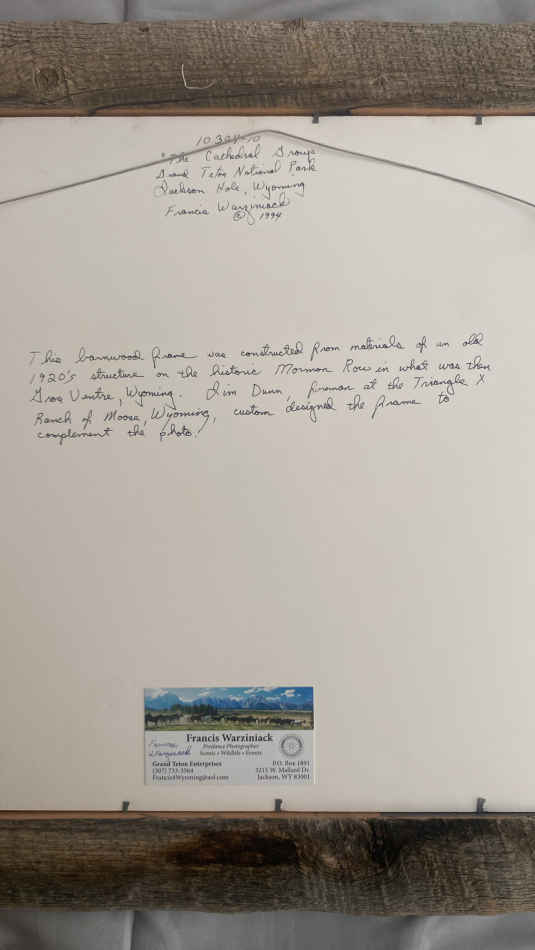 "The Cathedral Group
Grand Teton National Park
Jackson Hole, Wyoming
Francis Warziniack
© 1994
This barnwood frame was constructed from materials of an old
1920's structure on the historic Mormon Row in what was then
Gros Ventre, Wyoming. Jim Dunn, foreman at the Triangle X
Ranch of Moose, Wyoming, custom designed the frame to
complement the photo.
Francis Warziniack
Freelance Photographer
Scenic • Wildlife • Events
Francis
Warziniack
Grand Teton Enterprises
(307) 733-3564
Francis4Wyoming@aol.com
P.O. Box 1891
3215 W. Mallard Dr.
Jackson, WY 83001